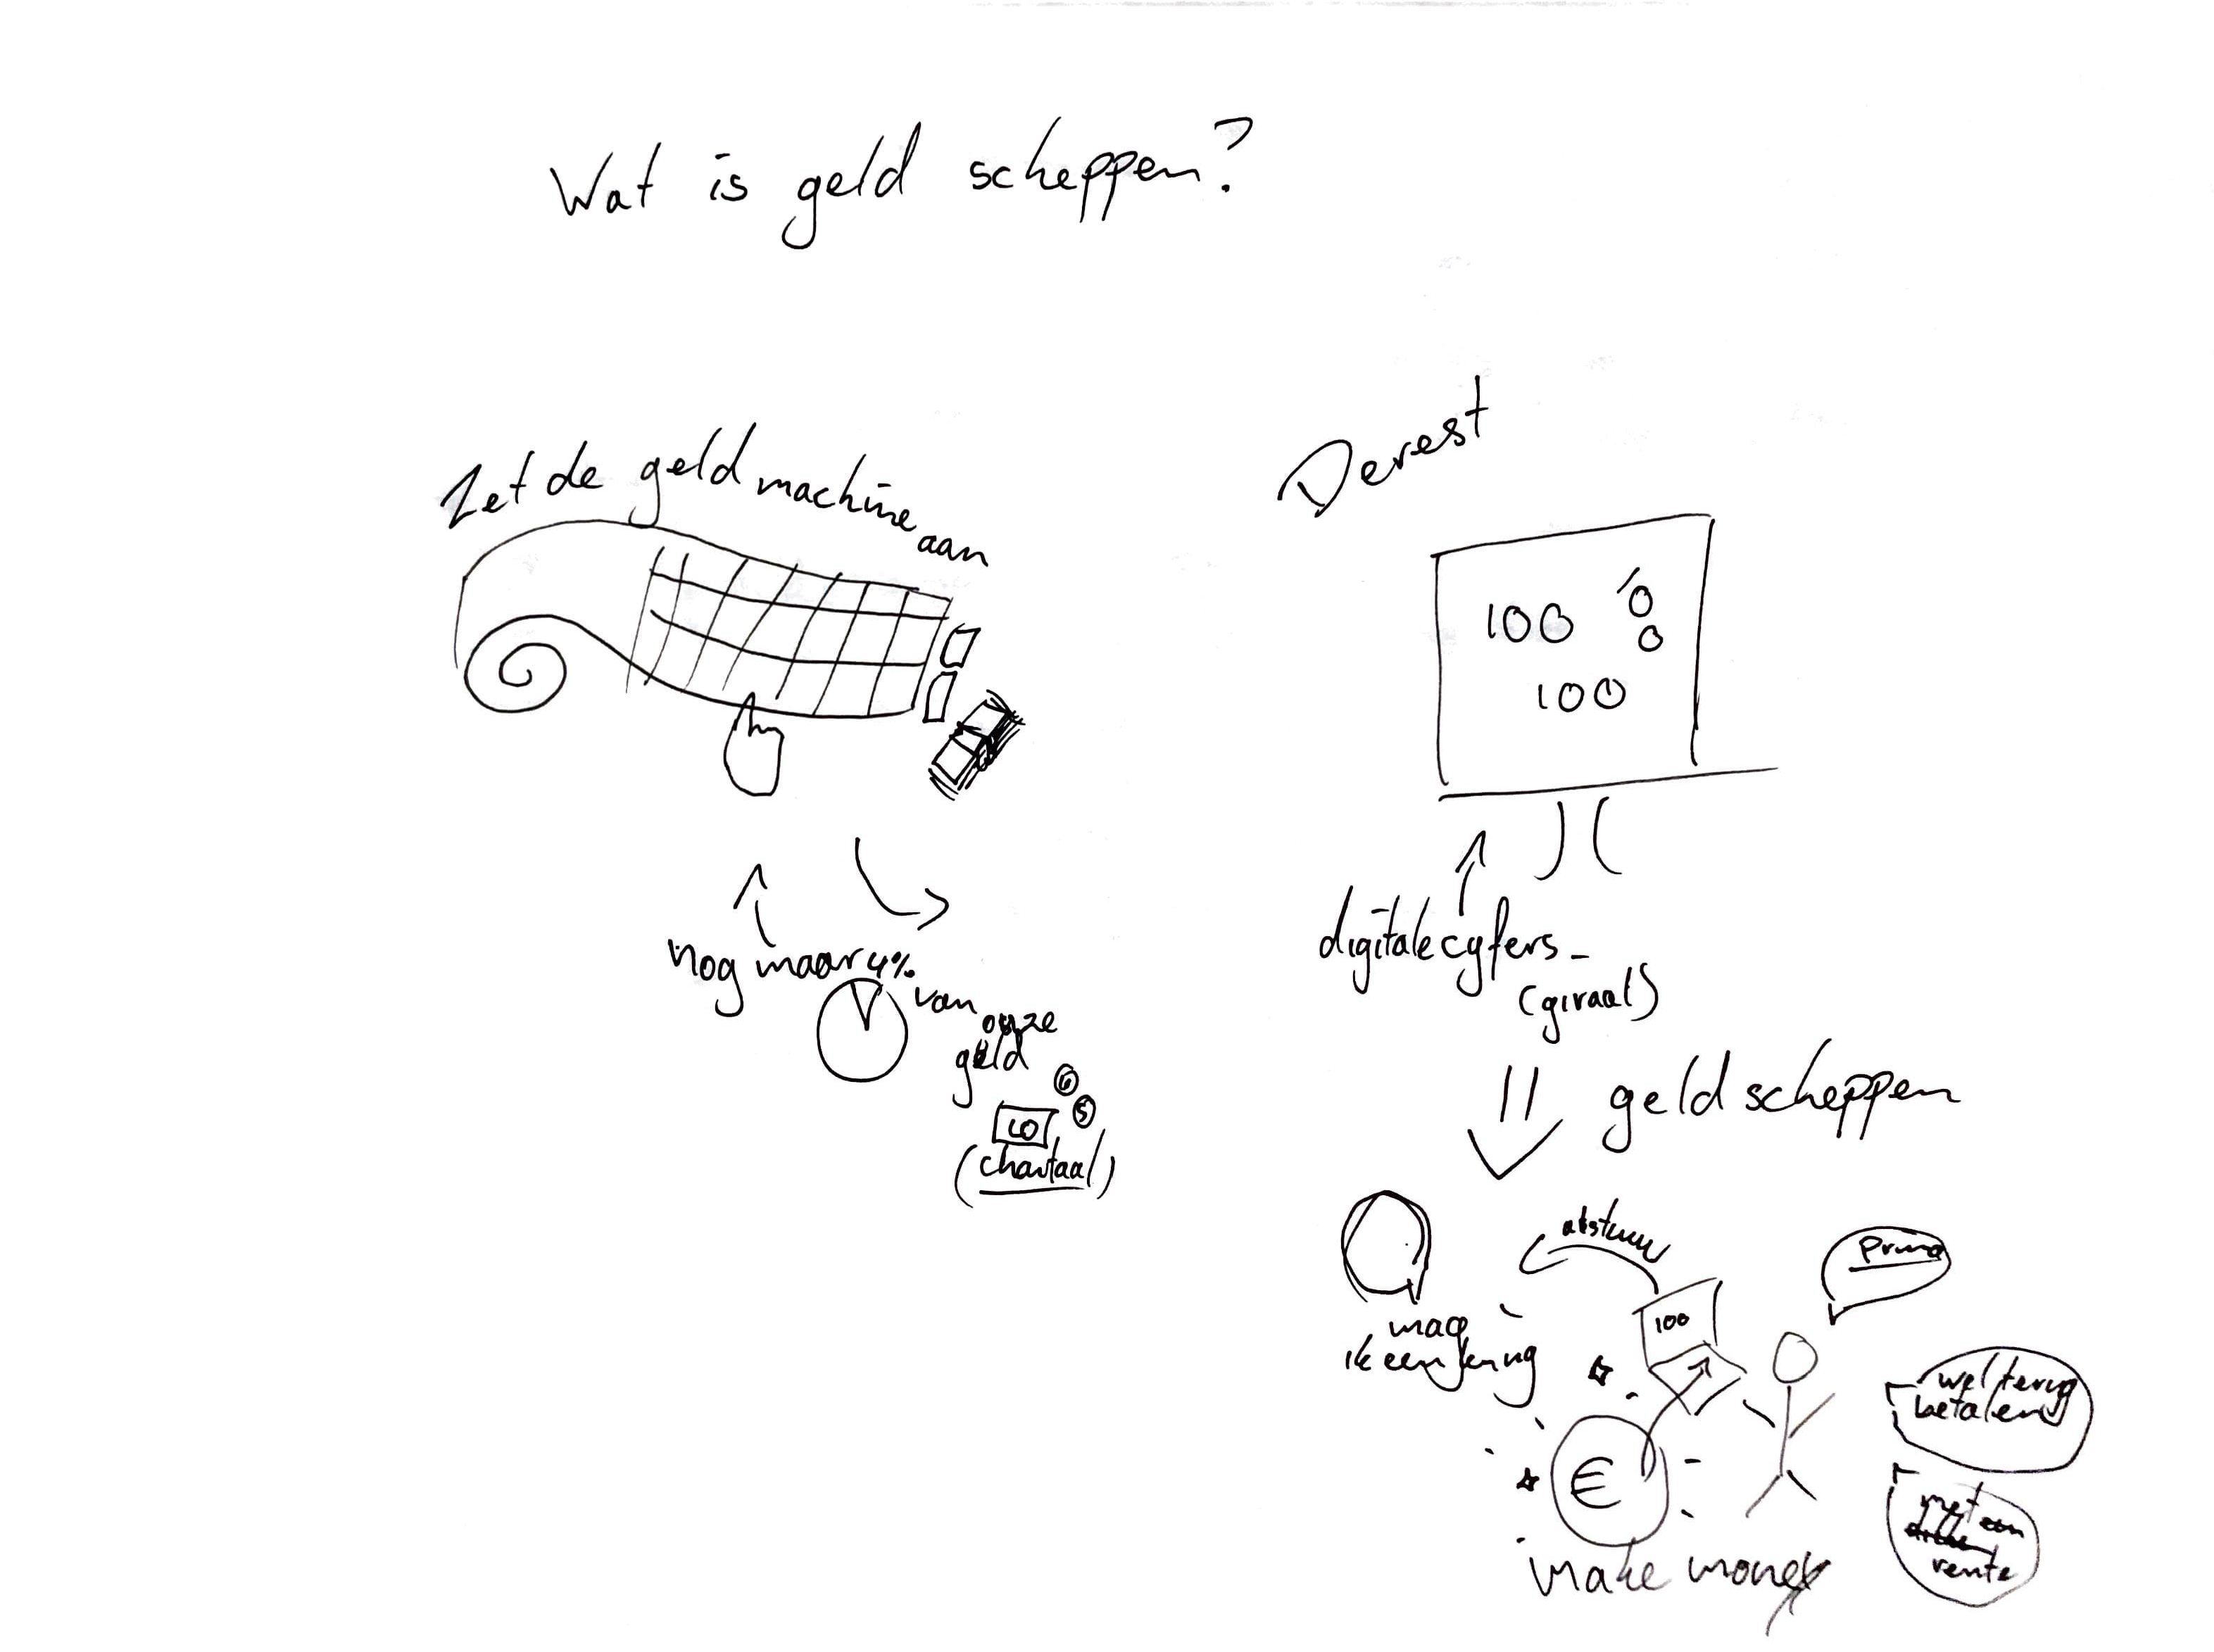 Wat is geld scheppen?
Zet de geld machine aan
nog maar 4% van onze
geld
10
(chartaal)
De rest
100
100
100
digitale cyfers
(giraal)
geld scheppen
mag
ik een lening
100
Prima
wel terug
betalen
met
rente
€
make money